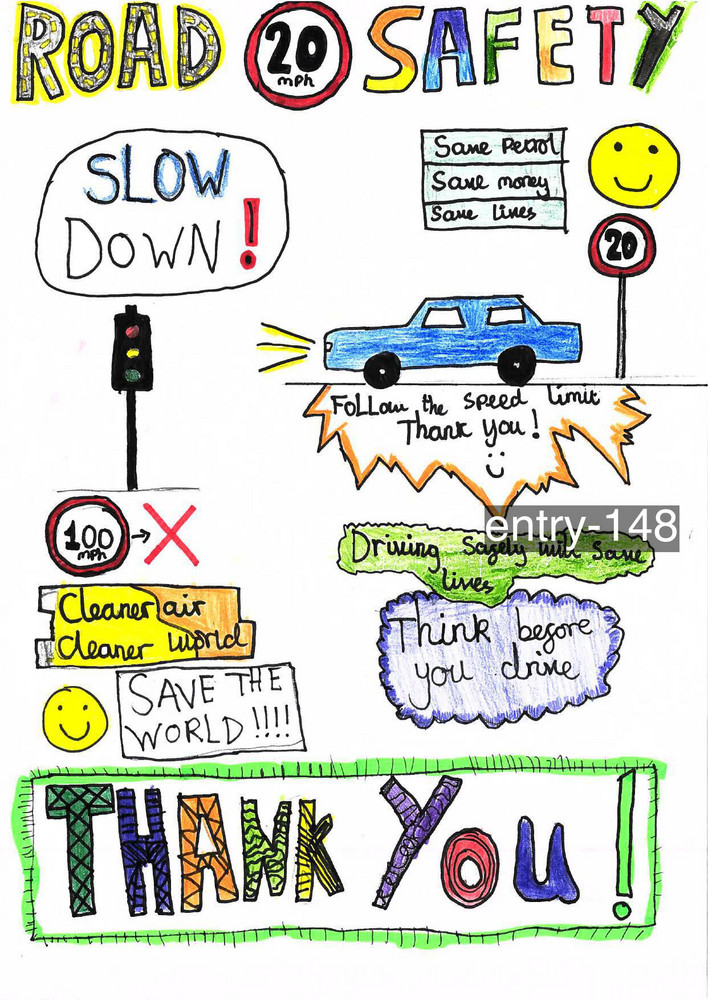 ROAD 20 mph SAFETY
SLOW
DOWN!
Save Petrol
Save money
Save lives
20
Follow the speed limit
Thank you!
entry-148
100
mph
Driving Safely will save
lives
Cleaner air
cleaner world
Think before
you drive
SAVE THE
WORLD !!!!
THANK YOU!